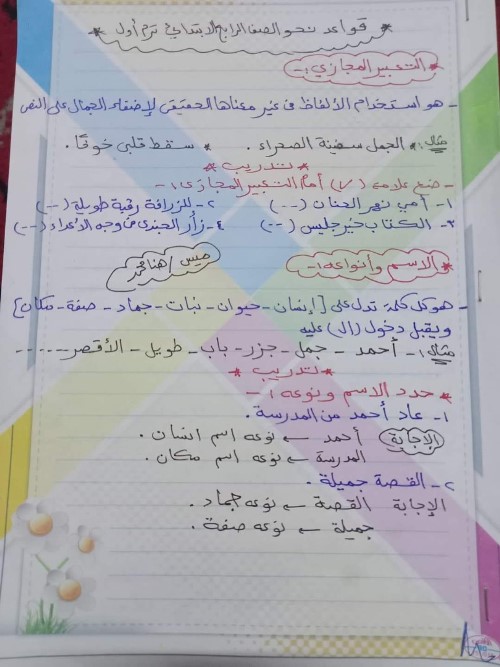 * قواعد نحو الصف الرابع الابتدائي ترم أول *
* التعبير المجازي :-
- هو استخدام الألفاظ في غير معناها الحقيقي لإضفاء الجمال على النص
مثال :* الجمل سفينة الصحراء . * سقط قلبي خوفًا .
* تدريب *
- ضع علامة (√) أمام التعبير المجازي :-
١- أمي نهر الحنان (--) ٢- للزرافة رقبة طويلة (--)
٣- الكتاب خير جليس (--) ٤- زأر الجندي في وجه الأعداء (--)
* الاسم وأنواعه :- ميس / هنا محمد
- هو كل كلمة تدل على [إنسان - حيوان - نبات - جماد - صفة - مكان]
ويقبل دخول (ال) عليه
مثال :- أحمد - جمل - جزر - باب - طويل - الأقصر ------
* تدريب *
* حدد الاسم ونوعه :-
١- عاد أحمد من المدرسة .
الإجابة أحمد ← نوعه اسم انسان .
المدرسة ← نوعه اسم مكان .
٢- القصة جميلة .
الإجابة القصة ← نوعه جماد .
جميلة ← نوعه صفة .